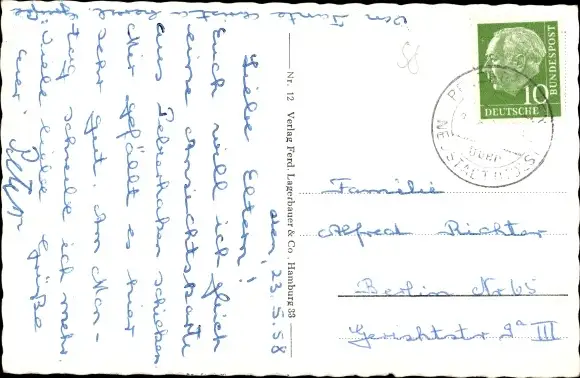 den 23.5.58
Liebe Eltern!
Euch will ich gleich
eine Ansichtskarte
aus Pelzerhaken schicken
Mir gefällt es hier
sehr gut. Am Mon-
tag schreibe ich mehr.
Viele liebe Grüße
euer
von Tante
58
Nr. 12 Verlag Ferd. Lagerbauer & Co., Hamburg 33
DEUTSCHE
BUNDESPOST
10
Familie
Alfred Richter
Berlin Nr 65
Gerichtstr. 9a III